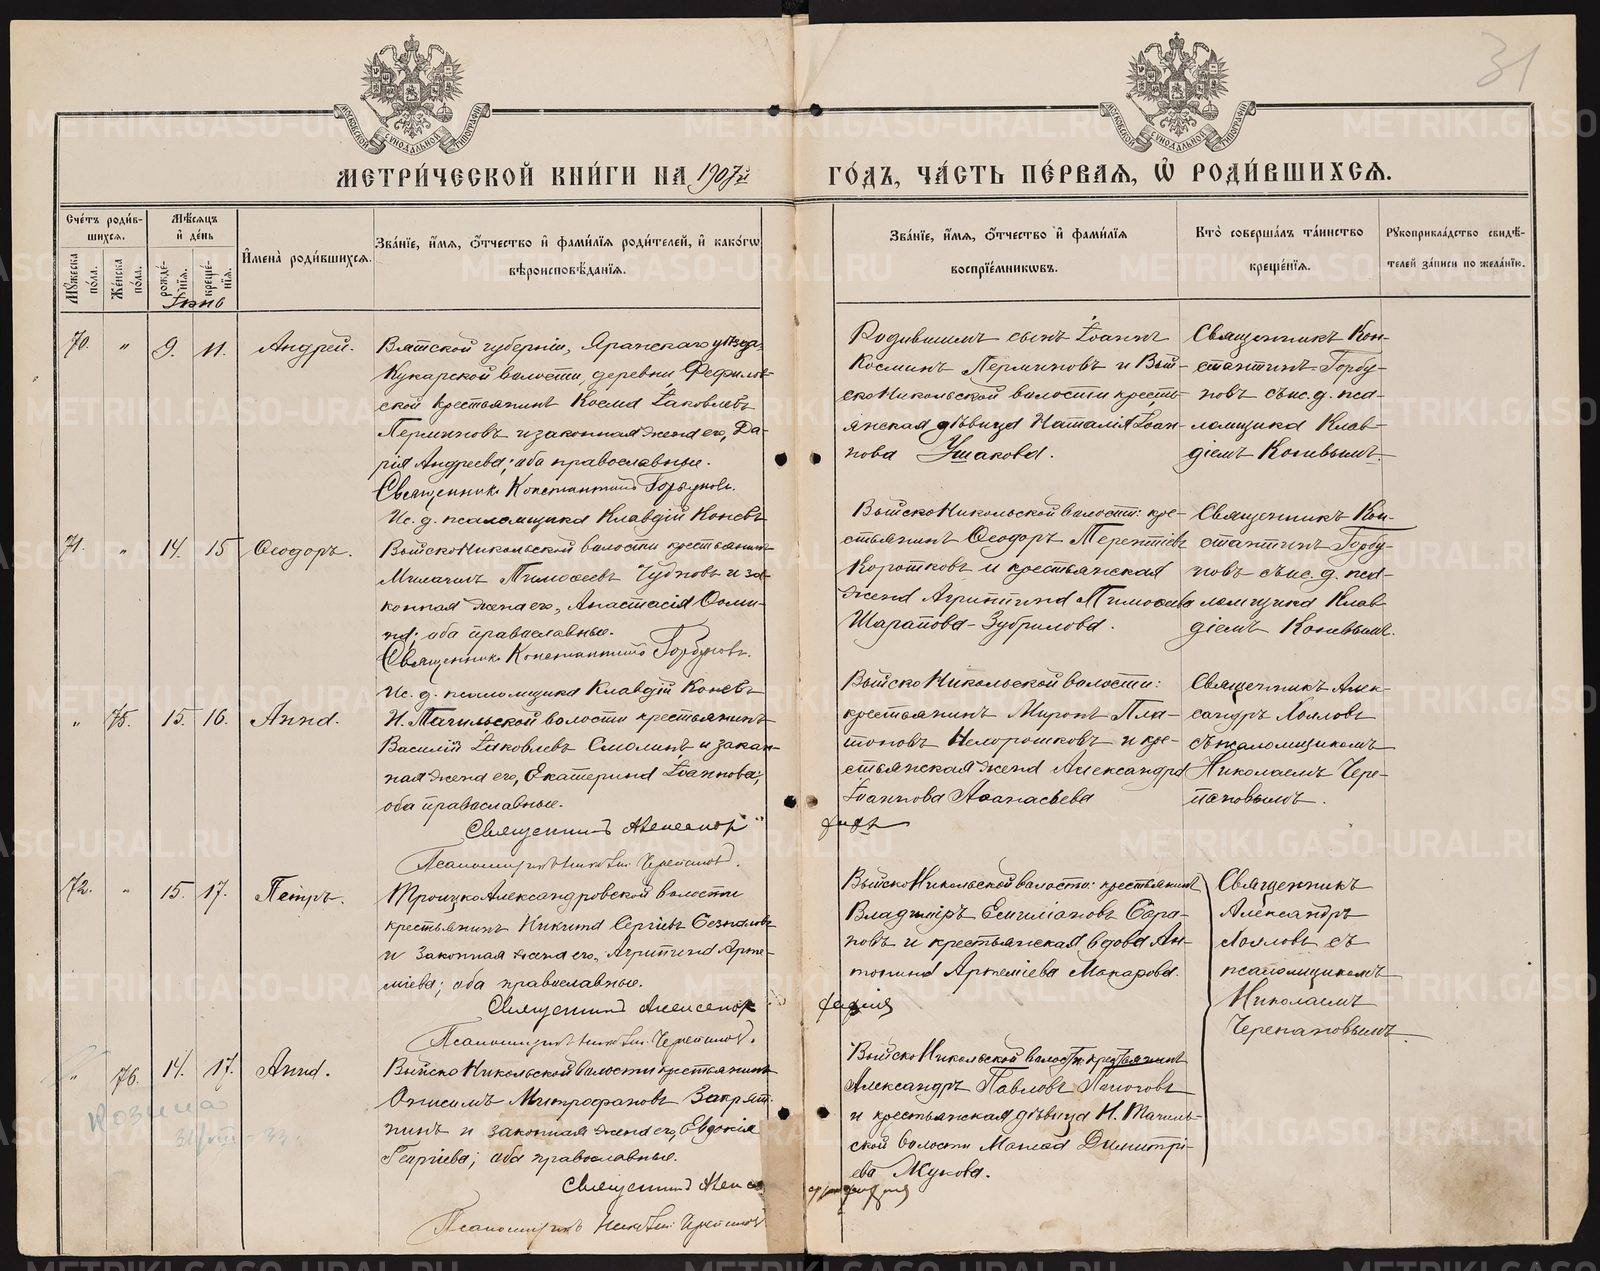 31
МОСКОВСКОЙ СѴНОДАЛЬНОЙ ТИПОГРАФІИ
МОСКОВСКОЙ СѴНОДАЛЬНОЙ ТИПОГРАФІИ
МЕТРИ́ЧЕСКОЙ КНИ́ГИ НА 1907й
ГО́ДЪ, ЧА́СТЬ ПЕ́РВАЯ, Ѡ РОДИ́ВШИХСЯ.
Сче́тъ роди́в-
шихся.
Мѣ́сяцъ
и де́нь
Му́жеска по́ла.
Же́нска по́ла.
рожде́-нія.
креще́-нія.
И҆мена̀ роди́вшихся.
Зва́нїе, и҆́мя, ѻ҆́тчество и҆ фами́лїя роди́телей, и҆ како́гѡ
вѣроисповѣ́данїя.
Зва́нїе, и҆́мя, ѻ҆́тчество и҆ фами́лїя
воспрїе́мникѡвъ.
Кто̀ соверша́лъ та́инство
креще́нїя.
Рꙋкоприкла́дство свидѣ́-
телей за́писи по жела́нїю.
Іюнь
70. " 9. 11. Андрей.
Вятской губерніи, Яранскаго уѣзда,
Кукарской волости, деревни Фефилов-
ской крестьянинъ Косма Іаковлевъ
Перминовъ и законная жена его, Да-
рія Андреева; оба православные.
Священникъ Константинъ Горбуновъ.
Ис. д. псаломщика Клавдій Коневъ
Родившимъ сынъ Іоаннъ
Косминъ Перминовъ и Вый-
скоНикольской волости кресть-
янская дѣвица Наталія Іоан-
нова Ушакова.
Священникъ Кон-
стантинъ Горбу-
новъ съ ис. д. пса-
ломщика Клав-
діемъ Коневымъ.
71. " 14. 15 Ѳеодоръ.
ВыйскоНикольской волости крестьянинъ
Михаилъ Тимоѳеевъ Чудновъ и за-
конная жена его, Анастасія Ѳоми-
на; оба православные.
Священникъ Константинъ Горбуновъ.
Ис. д. псаломщика Клавдій Коневъ
ВыйскоНикольской волости: кре-
стьянинъ Ѳеодоръ Терентіевъ
Коротковъ и крестьянская
жена Агриппина Тимоѳеева
Шарапова-Зубрилова.
Священникъ Кон-
стантинъ Горбу-
новъ съ ис. д. пса-
ломщика Клав-
діемъ Коневымъ.
" 75. 15. 16. Анна.
Н. Тагильской волости крестьянинъ
Василій Іаковлевъ Смолинъ и закон-
ная жена его, Екатерина Іоаннова;
оба православные.
Священникъ Александръ
Псаломщикъ Николай Черепановъ.
ВыйскоНикольской волости:
крестьянинъ Миронъ Пла-
тоновъ Непорошковъ и кре-
стьянская жена Александра
Іоаннова Аѳанасьева
Священникъ Алек-
сандръ Хохловъ
съ псаломщикомъ
Николаемъ Чере-
пановымъ.
72. " 15. 17. Петръ.
ТроицкоАлександровской волости
крестьянинъ Никита Сергіевъ Безпаловъ
и законная жена его, Агриппина Арте-
міева; оба православные.
Священникъ Александръ
Псаломщикъ Николай Черепановъ.
ВыйскоНикольской волости: крестьянинъ
Владиміръ Емиліановъ Сара-
новъ и крестьянская вдова Ан-
тонина Артеміева Макарова.
Священникъ
Александръ
Хохловъ съ
псаломщикомъ
Николаемъ
Черепановымъ.
" 76. 14. 17. Анна.
ВыйскоНикольской волости крестьянинъ
Онисимъ Митрофановъ Закрят-
нинъ и законная жена его, Евдокія
Георгіева; оба православные.
Священникъ
Псаломщикъ Николай Черепановъ
ВыйскоНикольской волости крестьянинъ
Александръ Павловъ Пологовъ
и крестьянская дѣвица Н. Тагиль-
ской волости Димитрі-
ева Жукова.